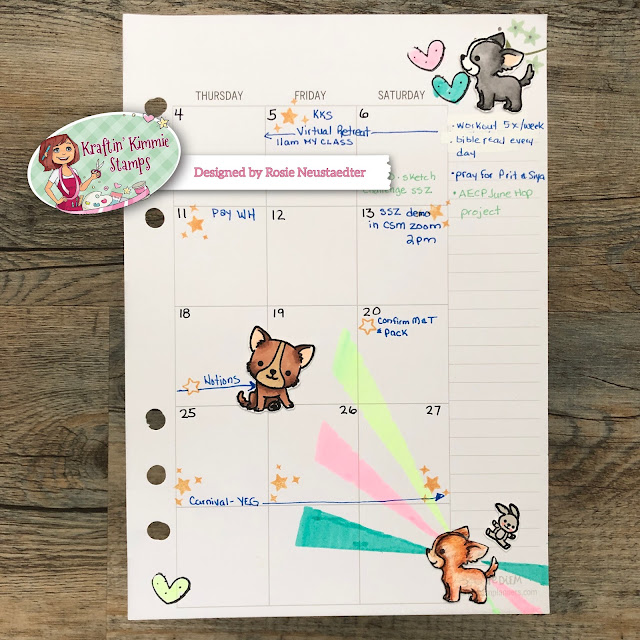 THURSDAY FRIDAY SATURDAY
4 5 6
KKS
Virtual Retreat
11am MY CLASS
sketch
challenge SSZ
Kraftin' Kimmie
Stamps
Designed by Rosie Neustaedter
• workout 5x/week
• bible read every
day
• pray for Prit & Siya
• AECP June Hop
project
11 12 13
Pay WH
SSZ demo
in CSM zoom
2pm
18 19 20
Confirm M&T
& pack
Notions
25 26 27
Carnival - YEG